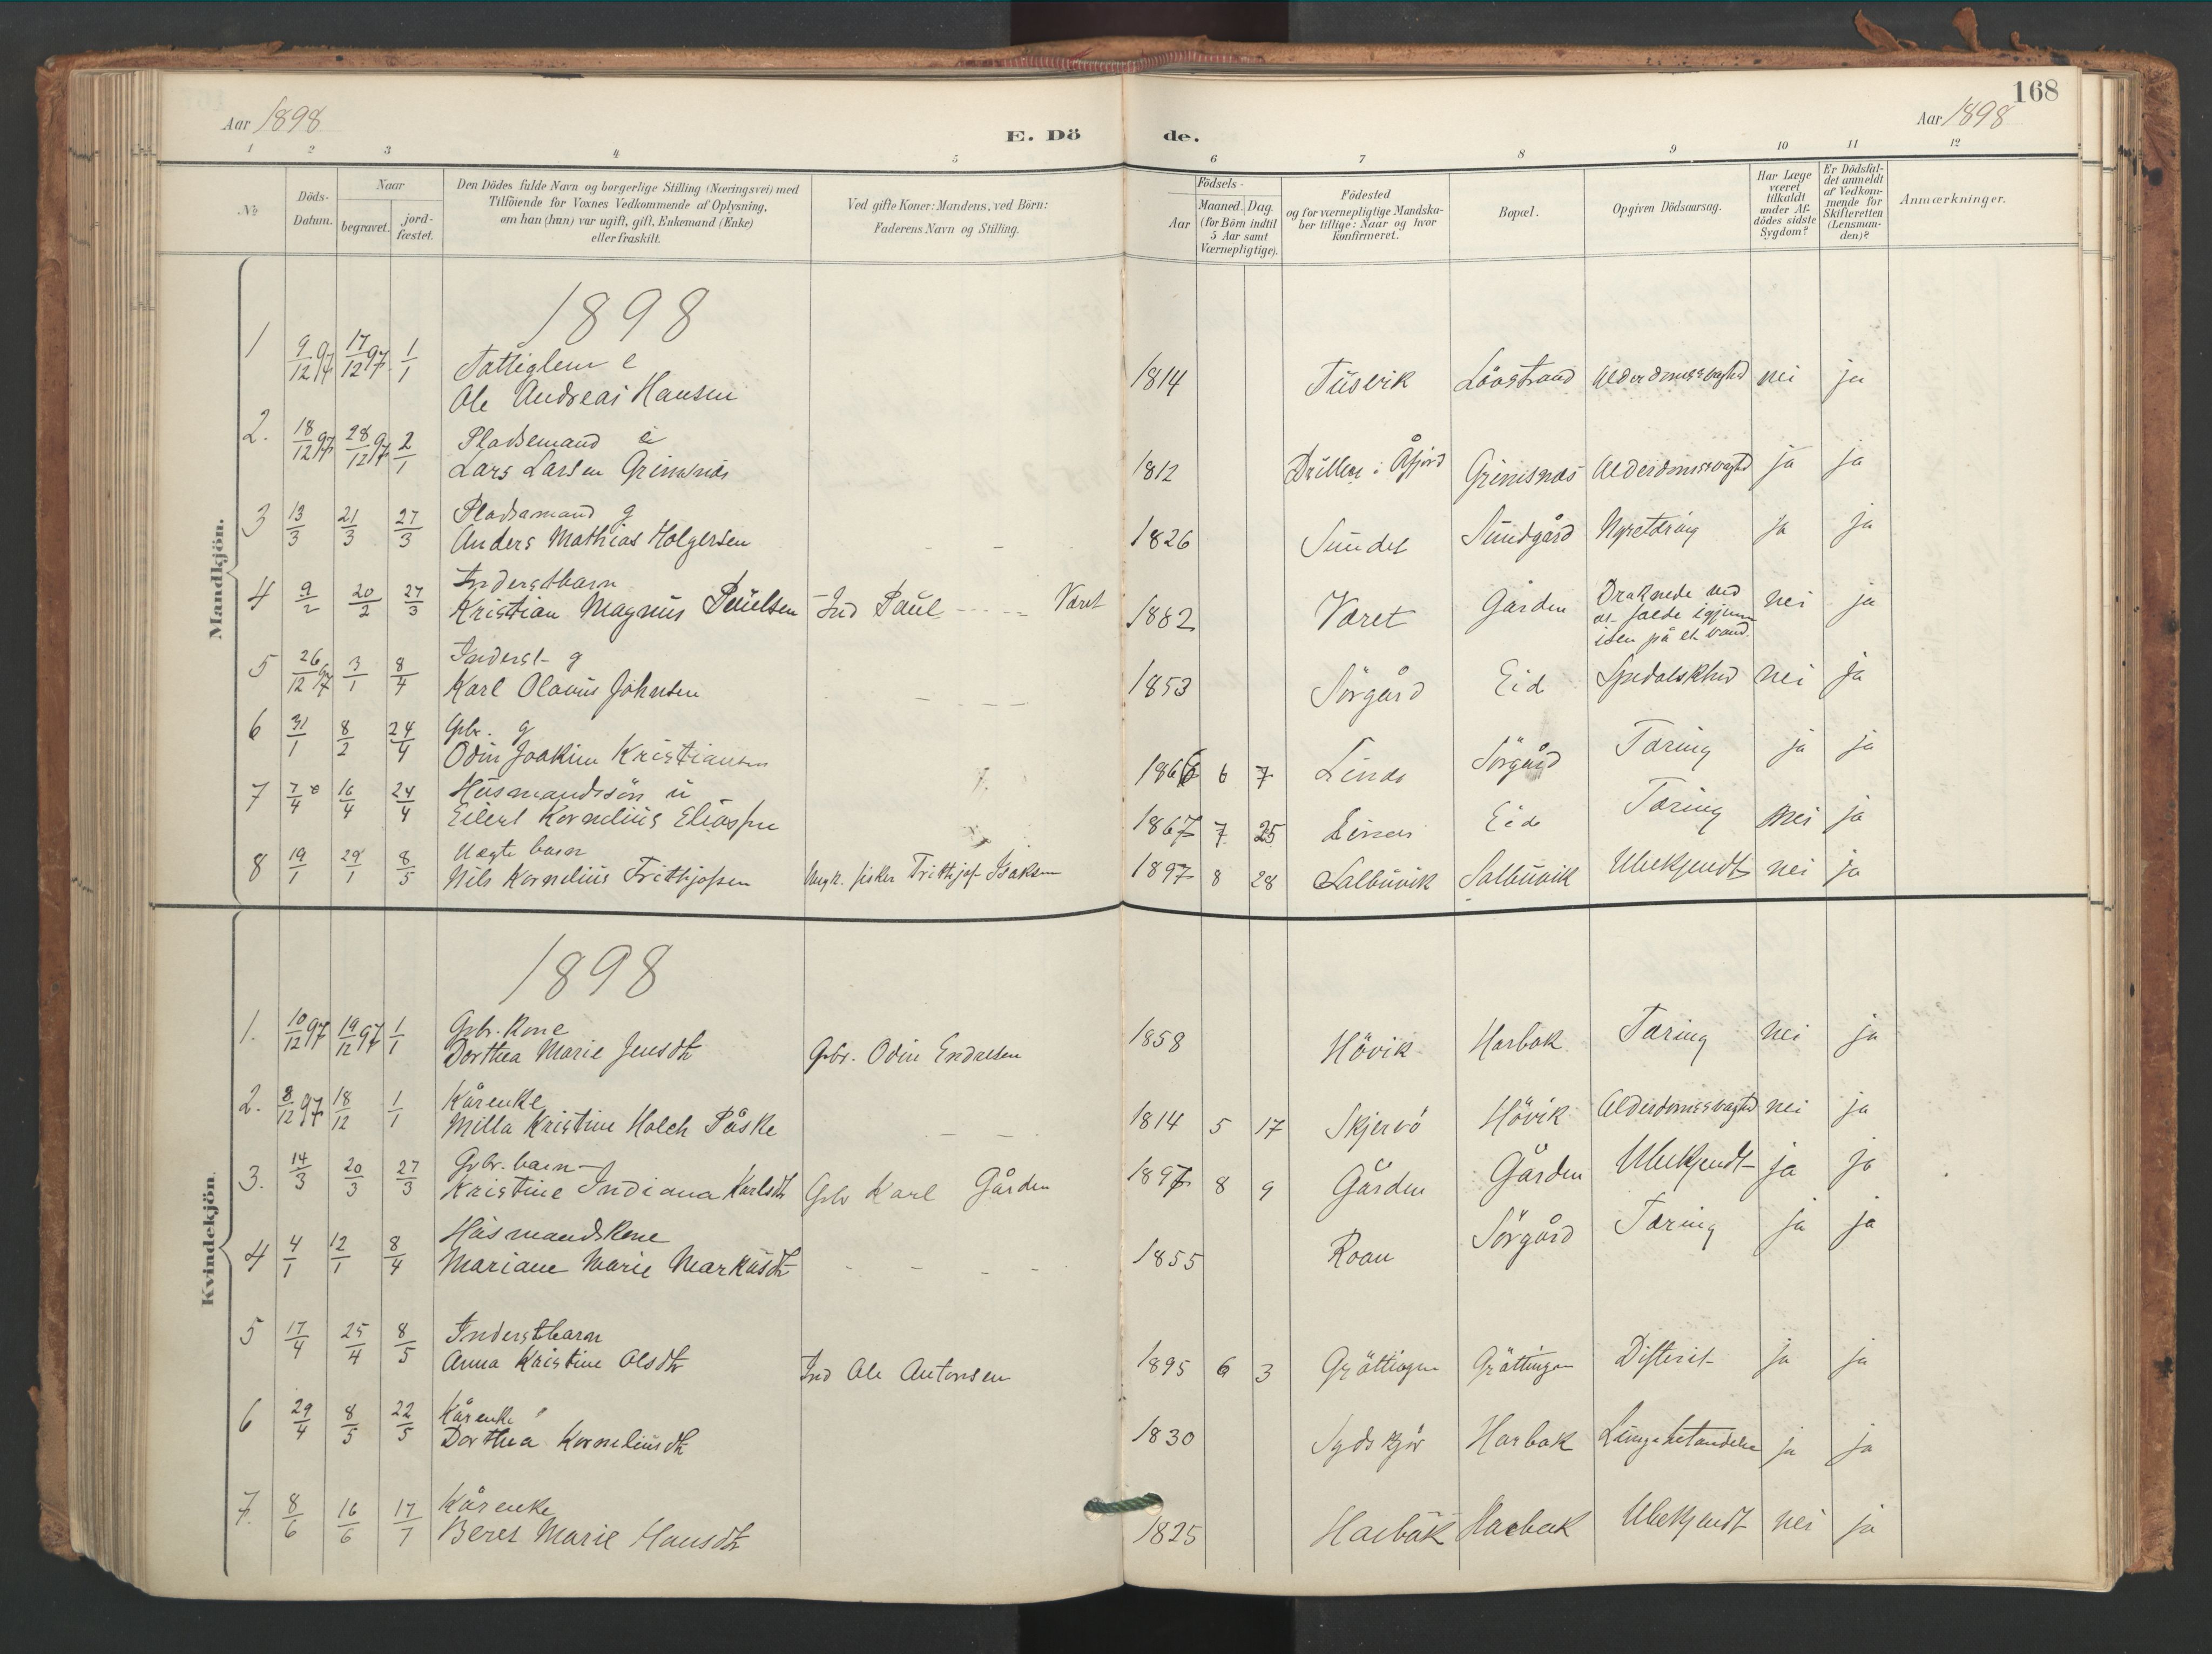 168
Aar 1898
E. Dö
de.
Aar 1898
1 2 3 4 5 6 7 8 9 10 11 12
No
Döds-Datum.
Naar
begravet.
jord-fæstet.
Den Dödes fulde Navn og borgerlige Stilling (Næringsvei) med
Tilföiende for Voxnes Vedkommende af Oplysning,
om han (hun) var ugift, gift, Enkemand (Enke)
eller fraskilt.
Ved gifte Koner: Mandens, ved Börn:
Faderens Navn og Stilling.
Födsels-
Aar
Maaned. Dag.
(for Börn indtil
5 Aar samt
Værnepligtige).
Födested
og for værnepligtige Mandska-
ber tillige: Naar og hvor
konfirmeret.
Bopæl.
Opgiven Dödsaarsag.
Har Læge
været
tilkaldt
under Af-
dödes sidste
Sygdom?
Er Dödsfal-
det anmeldt
af Vedkom-
mende for
Skifteretten
(Lensman-
den)?
Anmærkninger.
Mandkjön.
1898
1 9/12 97 17/12 97 1/1 Fattiglem e
Ole Andreas Hansen 1814 Tüsvik Alderdomssvaghed nei ja
2. 18/12 97 28/12 97 2/1 Pladsemand e
Lars Larsen Grimsnäs 1812 i Åfjord Grimsnäs Alderdomssvaghed ja ja
3 13/3 21/3 27/3 Pladsamand g
Anders Mathias Holgersen - - 1826 Sündet Sündgård ja ja
4 9/2 20/2 27/3 Inderstbarn
Kristian Magnüs Paülsen Ind Paül - - - - Været 1882 Været Gården Druknede ved
at falde igjennem
isen på et vand. nei ja
5 26/12 97 3/1 8/4 Inderst g
Karl Olavüs Johnsen - - - - 1853 Sörgård Eid Spedalskhed nei ja
6 31/1 8/2 24/4 Gbr. g
Odin Joakim Kristiansen 1866 6 7 Sörgård Tæring ja ja
7 7/4 16/4 24/4 Hüsmandssön ü
Eilert Kornelius Eliassen 1867 7 25 Eid Tæring nei ja
8 19/1 29/1 8/5 Uægte barn
Nils Kornelius Frithjofsen Ungk. fisker Frithjof Isaksen 1897 8 28 Salbüvik Salbüvik Ubekjendt nei ja
Kvindekjön.
1898
1. 10/12 97 19/12 97 1/1 Gbr. Kone
Dorthea Marie Jensdtr Gbr. Odin Endresen 1858 Hövik Harbak Tæring nei ja
2. 8/12 97 18/12 1/1 Kårenke
Milla Kristine Holch Påske - - - 1814 5 17 Skjervö Hövik Alderdomssvaghed nei ja
3. 14/3 20/3 27/3 Gbr. barn
Kristine Indiana Karlsdtr Gbr Karl Gården 1897 8 9 Gården Gården Ubekjendt ja ja
4 4/1 12/1 8/4 Hüsmandskone
Mariane Marie Marküsdtr - - - - 1855 Roan Sörgård Tæring ja ja
5 17/4 25/4 8/5 Inderstbarn
Anna Kristine Olsdtr Ind Ole Antonsen 1895 6 3 Gröttingen Gröttingen Difterit ja ja
6 29/4 8/5 22/5 Kårenke
Dorthea Korneliusdtr 1830 Sydskjör Harbak Lüngebetændelse ja ja
7. 8/6 16/6 17/7 Kårenke
Beret Marie Hansdtr 1825 Harbak Harbak Ubekjendt nei ja